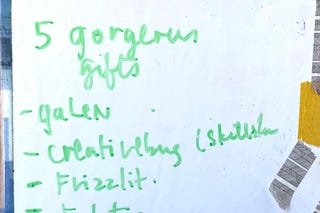 5 gorgeous
gifts
- galen
- creativebug (skillsha
- Frizzlit.